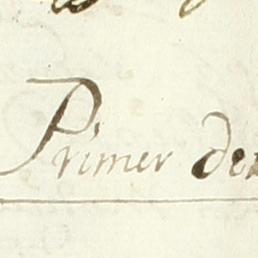 Primer de